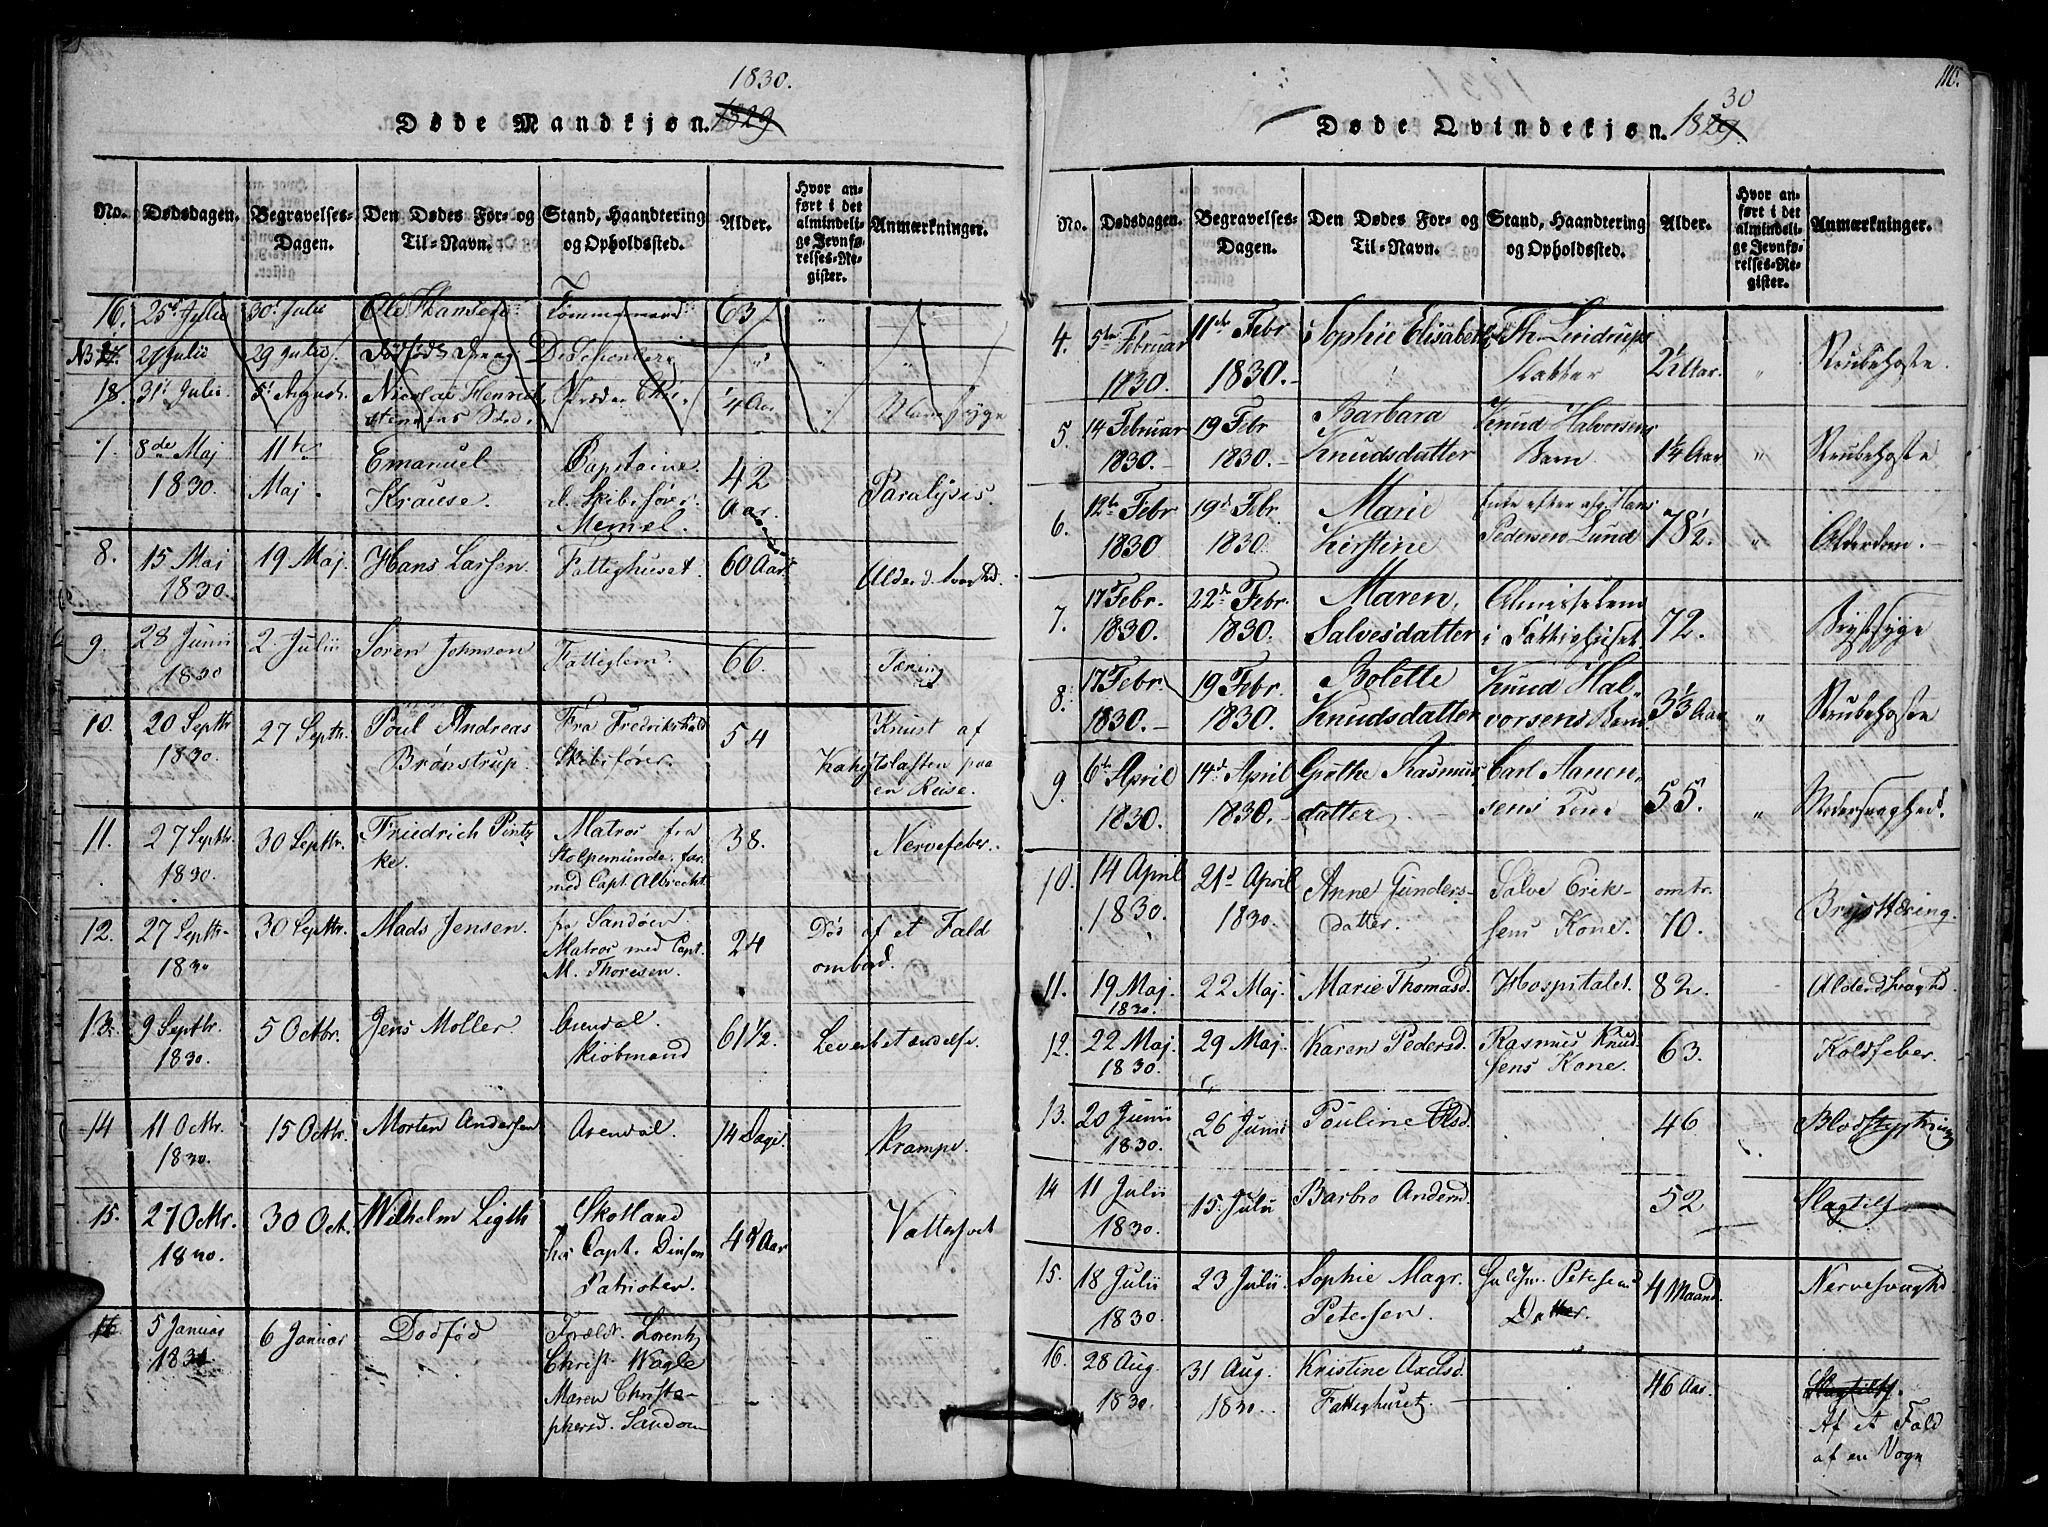 1830.
Døde Mandkjøn. 1829
No.
Dødsdagen.
Begravelses-
Dagen.
Den Dødes For- og
Til-Navn.
Stand, Haandtering
og Opholdssted.
Alder.
Hvor an-
ført i det
almindeli-
ge Jevnfø-
relses-Re-
gister.
Anmærkninger.
16. 25d Julii 30 Julii Ole Tommermand 63
29 Julii 29 Julii Dødfødt
18. 31 Julii 5 August. Nicolai Henrich 4 Aar
7. 8de Maj 11te Emanuel Capitaine 42
1830. Maj. Krause. Aar. Paralysis.
Memel.
8. 15 Maj 19 Maj. Hans Larsen. Fattighuset. 60 Aar
1830.
9. 28 Junii 2. Julii Soren Johnson Fattiglem. 66. Tæring
1830
10. 20 Septbr 27 Septbr. Poul Andreas Fra Fredrikshald 54 Knust af
1830. Brønstrup. Skibsfører. Kahytslasten paa
en Reise.
11. 27 Septbr. 30 Septbr. Friedrich Pintz Matros fra 38. Nervefeber.
1830. ke. Stolpemünde. far.
med Capt. Albrecht.
12. 27 Septbr. 30 Septbr. Mads Jensen. fra Sandøen 24 Død af et Fald
1830 Matros med Capt. ombord.
M. Thoresen.
13. 9 Septbr. 5 Octbr. Jens Møller. Arendal. 61 1/2. Leverbetændelse.
1830. Kiøbmand
14 11 Octbr. 15 Octbr. Morten Andersen Arendal. 14 Dage Krampe.
1830.
15. 27 Octbr. 30 Oct. Wilhelm Ligth Skotland Aar Vattersot
1830. hos Capt. Dinson
Patrioten.
16 5 Januar 6 Januar Dodfød Foræld. Lorentz
1831 Christ. Nagle
Maren Christo-
phersd. Sandøen
110.
Døde Qvindekjøn. 1829.
30
No.
Dødsdagen.
Begravelses-
Dagen.
Den Dødes For- og
Til-Navn.
Stand, Haandtering
og Opholdssted.
Alder.
Hvor an-
ført i det
almindeli-
ge Jevnfø-
relses-Re-
gister.
Anmærkninger.
4. 5te Februar 11te Febr Sophie Elisabeth Th. Lindrups 2 1/2 Aar. " Strubehoste.
1830. 1830. Datter
5. 14 Februar 19 Febr Barbara Knud Halvorsens 1 1/4 Aar " Strubehoste
1830. 1830. Knudsdatter Barn.
6. 12te Febr 19d Febr. Marie Enke efter afg. Hans 78 1/2. " Alderdom.
1830 1830. Kirstine Pedersen Lund
7. 17 Febr. 22d Febr. Maren Almisselem 72. Brystsyge
1830. 1830. Salvesdatter i Fattighuset.
8. 17 Febr. 19 Febr. Bolette Knud Hal- 3 1/3 Aar " Strubehoste
1830. 1830. Knudsdatter vorsens Barn.
9. 6te April 14d April Gunthe Rasmus Carl Aanon- 55. "
1830. 1830. datter sens Kone
10. 14 April 21d April Anne Gunders- Salve Erik- omtr. Brysttæring.
1830. 1830. datter. sens Kone. 70.
11. 19 Maj. 22 Maj. Marie Thomasd. Hospitalet. 82. Alderdsvaghd.
1830.
12. 22 Maj. 29 Maj. Karen Pedersd. Rasmus Knud 63. Koldfeber.
1830. sens Kone.
13. 20 Junii 26 Junii Pauline Olsd. 46 Blodstyrtning
1830.
14 11 Julii 15. Julii Barbro Andersd. 52 Slagtilf
1830.
15. 18 Julii 23 Julii Sophie Magr. Petersens 4 Maand. Nervesvaghd
1830. Petersen Datter.
16. 28 Aug. 31 Aug. Kristine Axelsd. 46 Aar. Slagtilf.
1830. 1830. Fattighuset. Af et Fald
af en Vogn